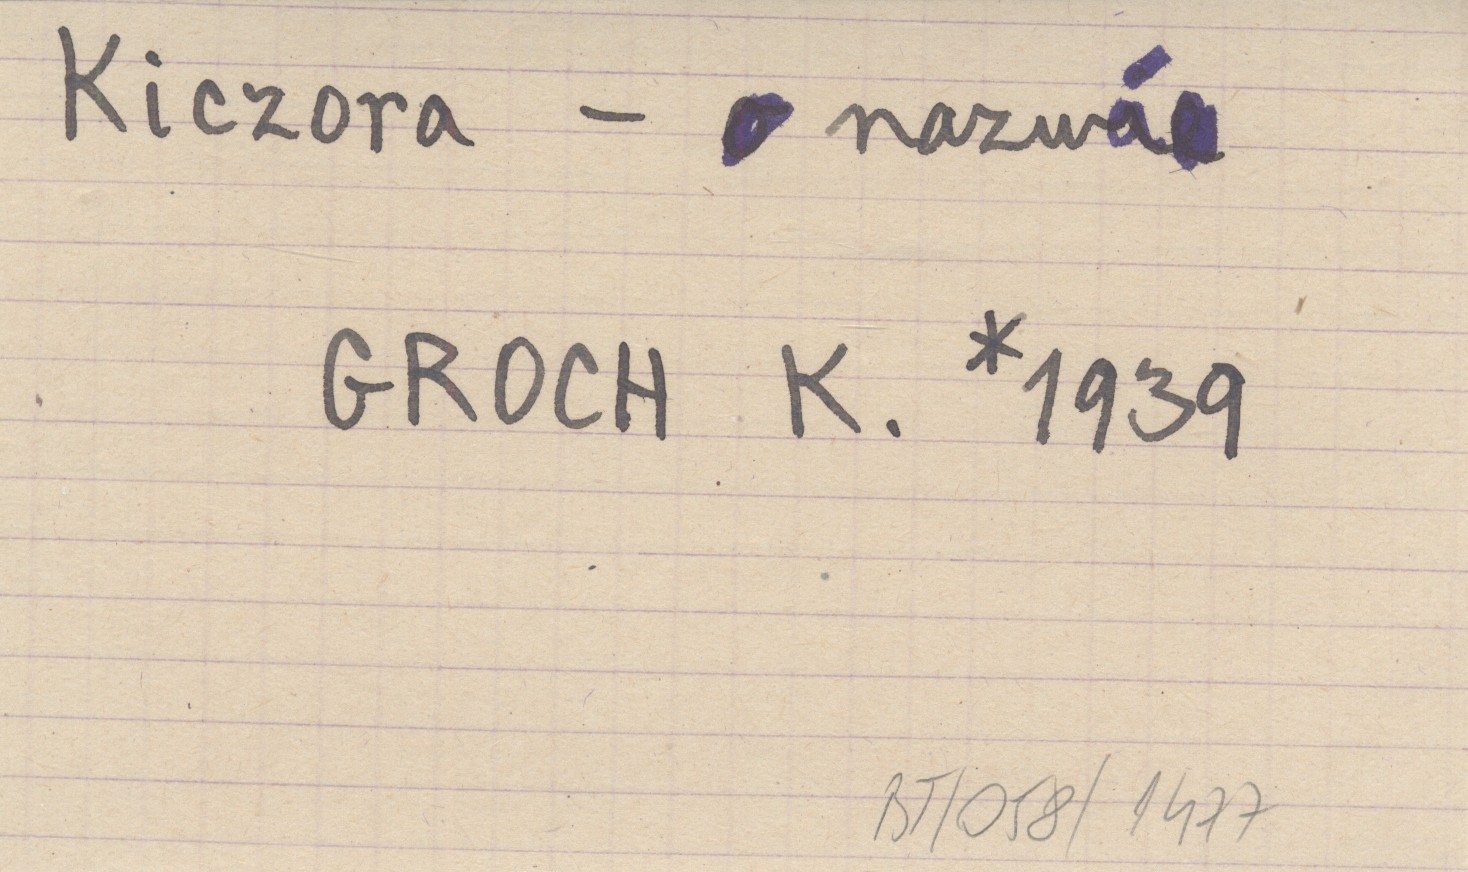 Kiczora - o nazwie
GROCH K. *1939
BT/058/1477